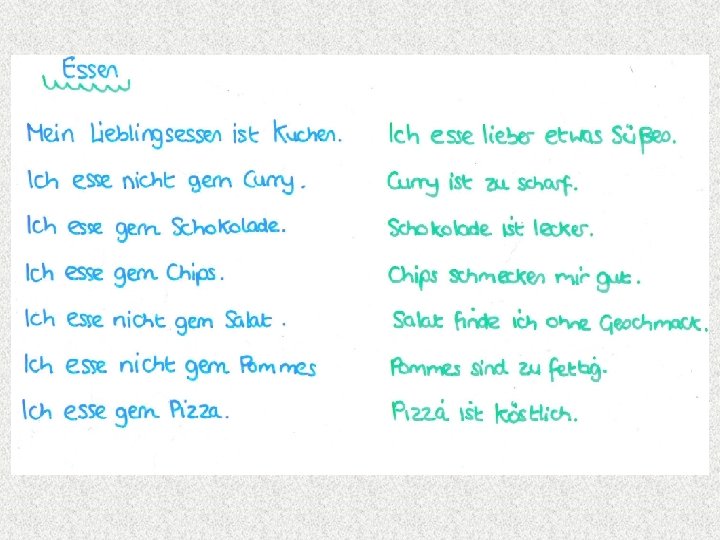 Essen
Mein Lieblingsessen ist Kuchen. Ich esse lieber etwas Süßes.
Ich esse nicht gern Curry. Curry ist zu scharf.
Ich esse gern Schokolade. Schokolade ist lecker.
Ich esse gern Chips. Chips schmecken mir gut.
Ich esse nicht gern Salat. Salat finde ich ohne Geschmack.
Ich esse nicht gern Pommes Pommes sind zu fettig.
Ich esse gern Pizza. Pizza ist köstlich.